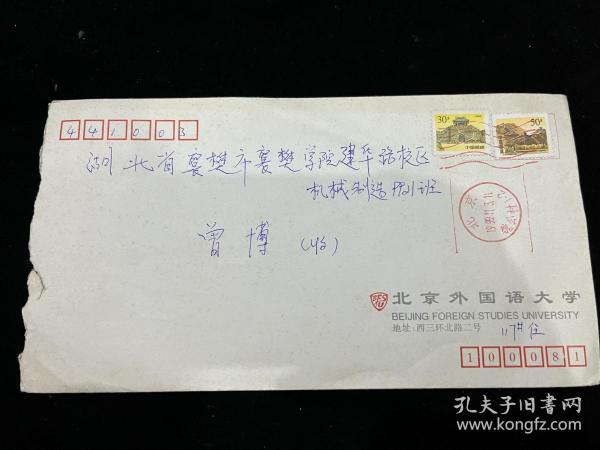 441003
30分
50分
湖北省襄樊市襄樊学院建华路校区
机械制造9921班
曾博(收)
北京
北京外国语大学
BEIJING FOREIGN STUDIES UNIVERSITY
地址:西三环北路二号
100081
孔夫子旧书网
www.kongfz.com